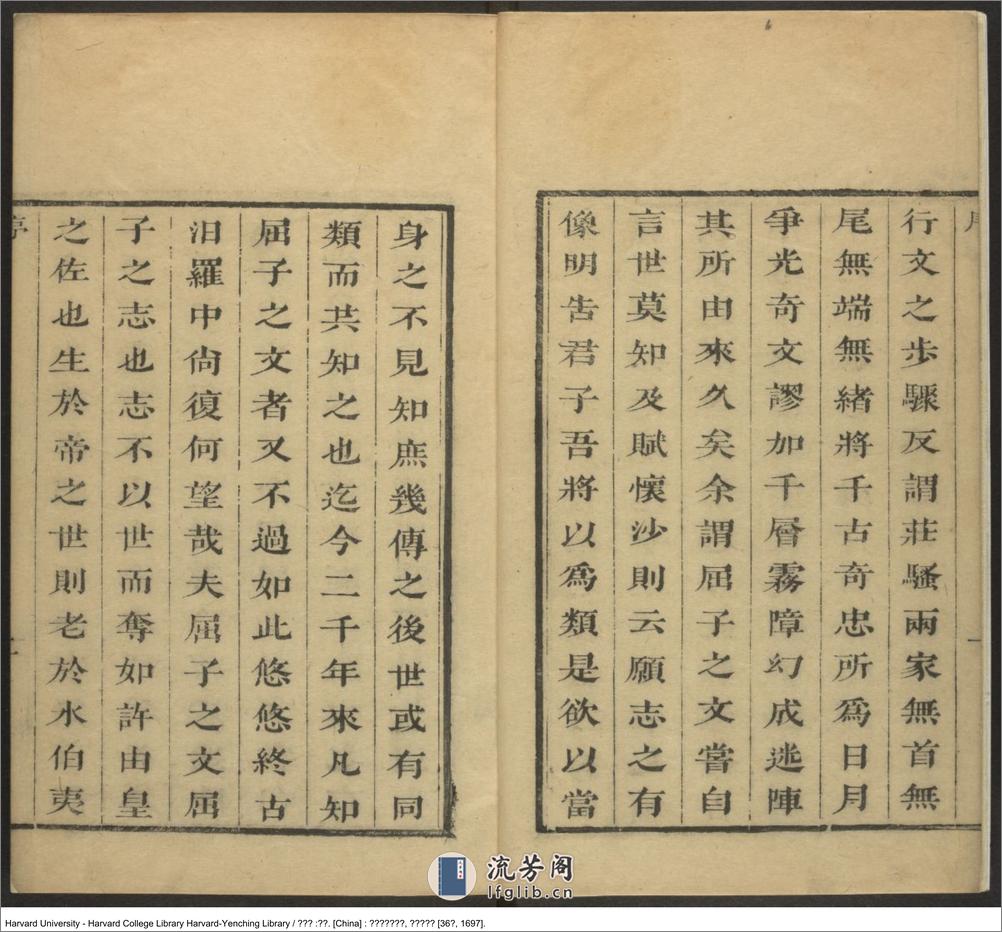 行文之步驟反謂莊騷兩家無首無
尾無端無緒將千古奇忠所爲日月
爭光奇文謬加千層霧障幻成迷陣
其所由來久矣余謂屈子之文嘗自
言世莫知及賦懷沙則云願志之有
像明告君子吾將以爲類是欲以當
身之不見知庶幾傳之後世或有同
類而共知之也迄今二千年來凡知
屈子之文者又不過如此悠悠終古
汨羅中尙復何望哉夫屈子之文屈
子之志也志不以世而奪如許由皇
之佐也生於帝之世則老於水伯夷
流芳阁
lfglib.cn
Harvard University - Harvard College Library Harvard-Yenching Library / ??? :??. [China] : ???????, ????? [36?, 1697].